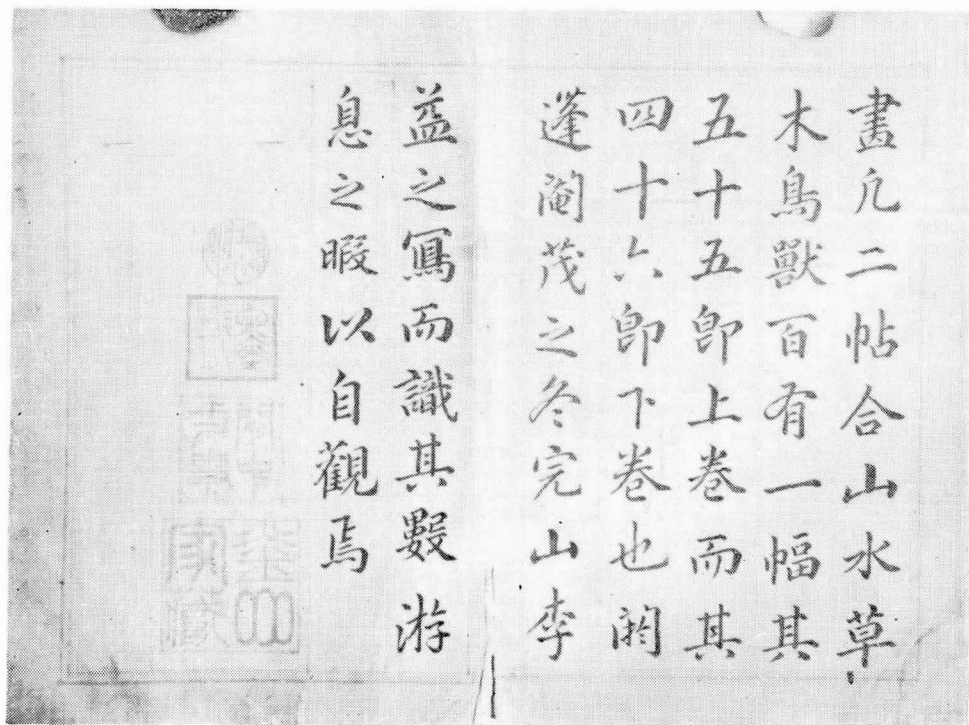 畫凢二帖合山水草
木鳥獸百有一幅其
五十五卽上卷而其
四十六卽下卷也閼
蓬閹茂之冬完山李
益之寫而識其數游
息之暇以自觀焉